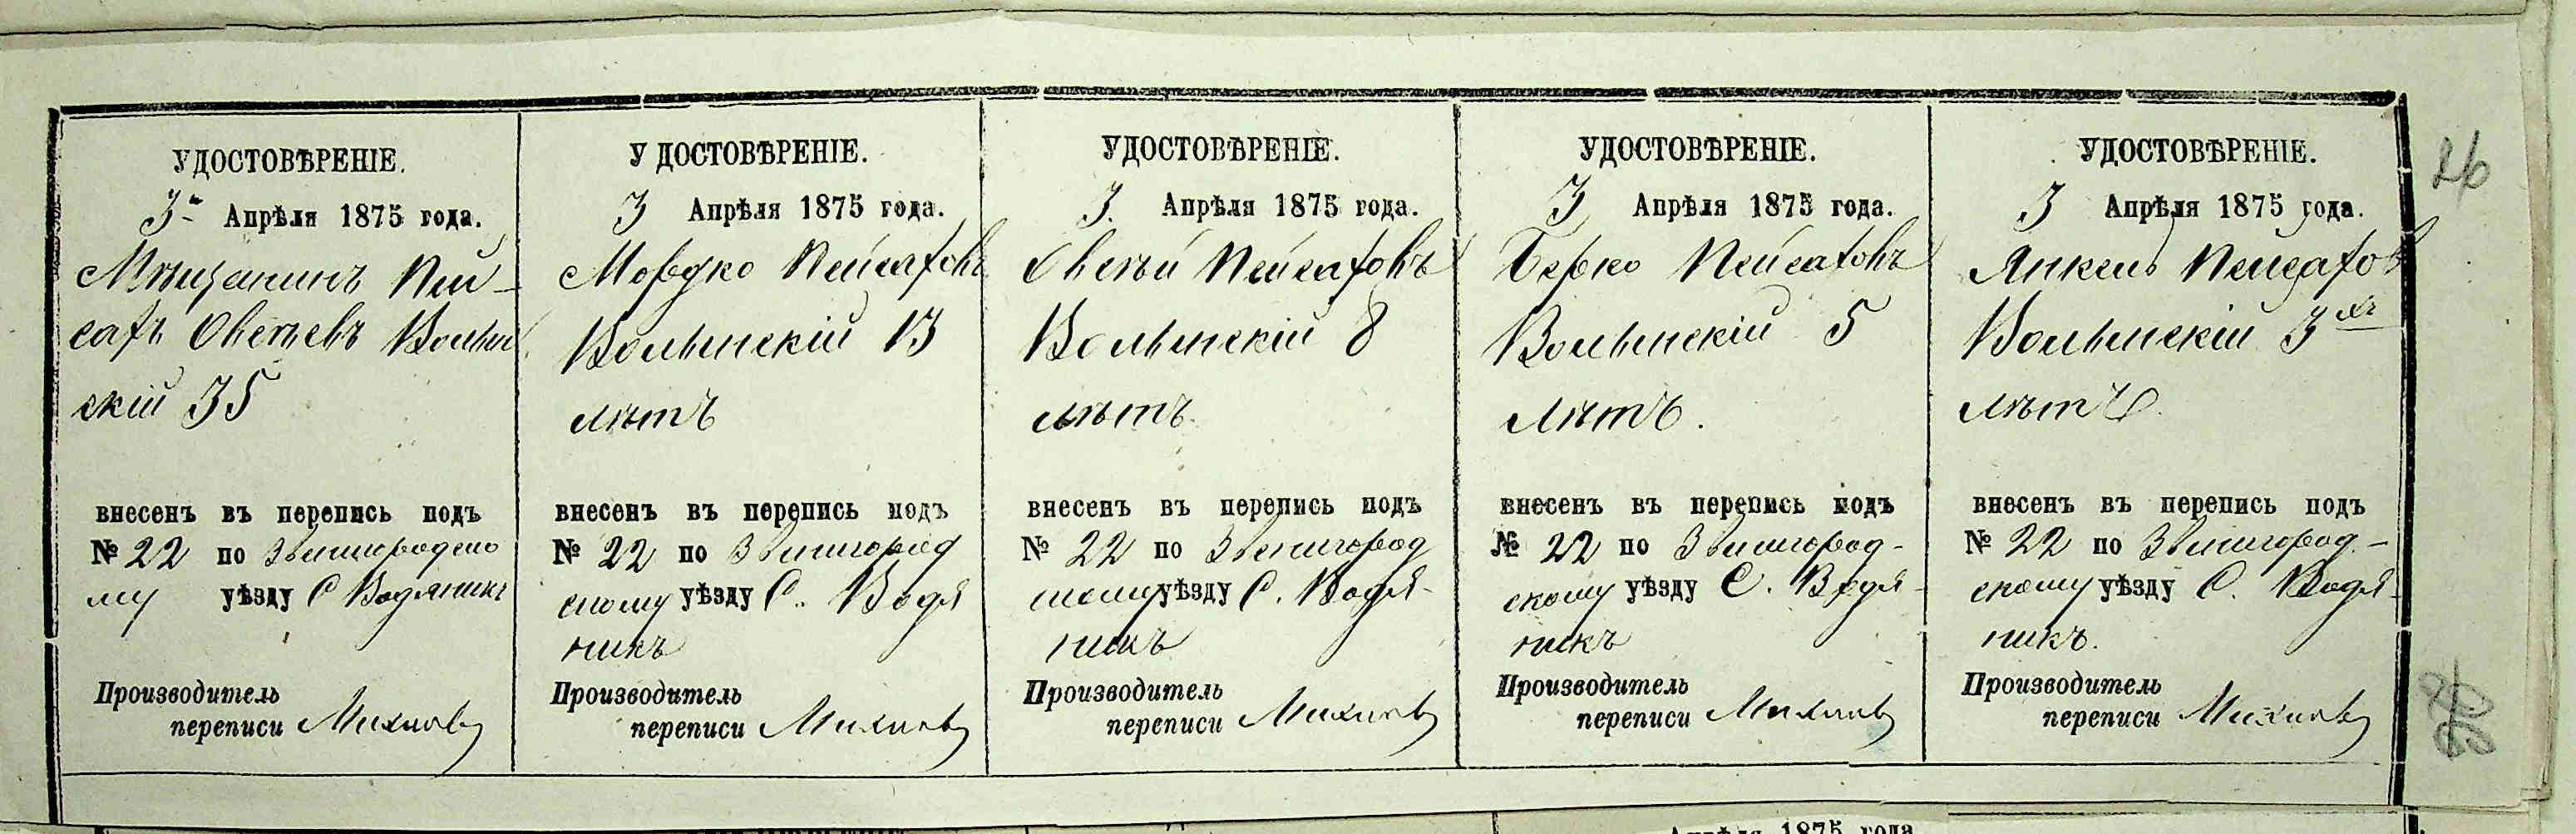 УДОСТОВѢРЕНІЕ.
3го Апрѣля 1875 года.
Мѣщанинъ Пей-
сахъ Овсѣевъ Волын
скій 35
внесенъ въ перепись подъ
№ 22 по Звенигородско
му уѣзду С Водяникъ
Производитель
переписи
УДОСТОВѢРЕНІЕ.
3 Апрѣля 1875 года.
Мордко Пейсаховъ
Волынскій 13
лѣтъ
внесенъ въ перепись подъ
№ 22 по Звенигород
скому уѣзду С. Водя
никъ
Производитель
переписи
УДОСТОВѢРЕНІЕ.
3. Апрѣля 1875 года.
Овсѣй Пейсаховъ
Волынскій 8
лѣтъ.
внесенъ въ перепись подъ
№ 22 по Звенигород
скому уѣзду С. Водя-
никъ
Производитель
переписи
УДОСТОВѢРЕНІЕ.
3 Апрѣля 1875 года.
Берко Пейсаховъ
Волынскій 5
лѣтъ.
внесенъ въ перепись подъ
№ 22 по Звенигород-
скому уѣзду С. Водя-
никъ
Производитель
переписи
УДОСТОВѢРЕНІЕ.
3 Апрѣля 1875 года.
Янкель Пейсахов
Волынскій 3хъ
лѣтъ.
внесенъ въ перепись подъ
№ 22 по Звенигород-
скому уѣзду С. Водя-
никъ.
Производитель
переписи
26
Апрѣля 1875 года